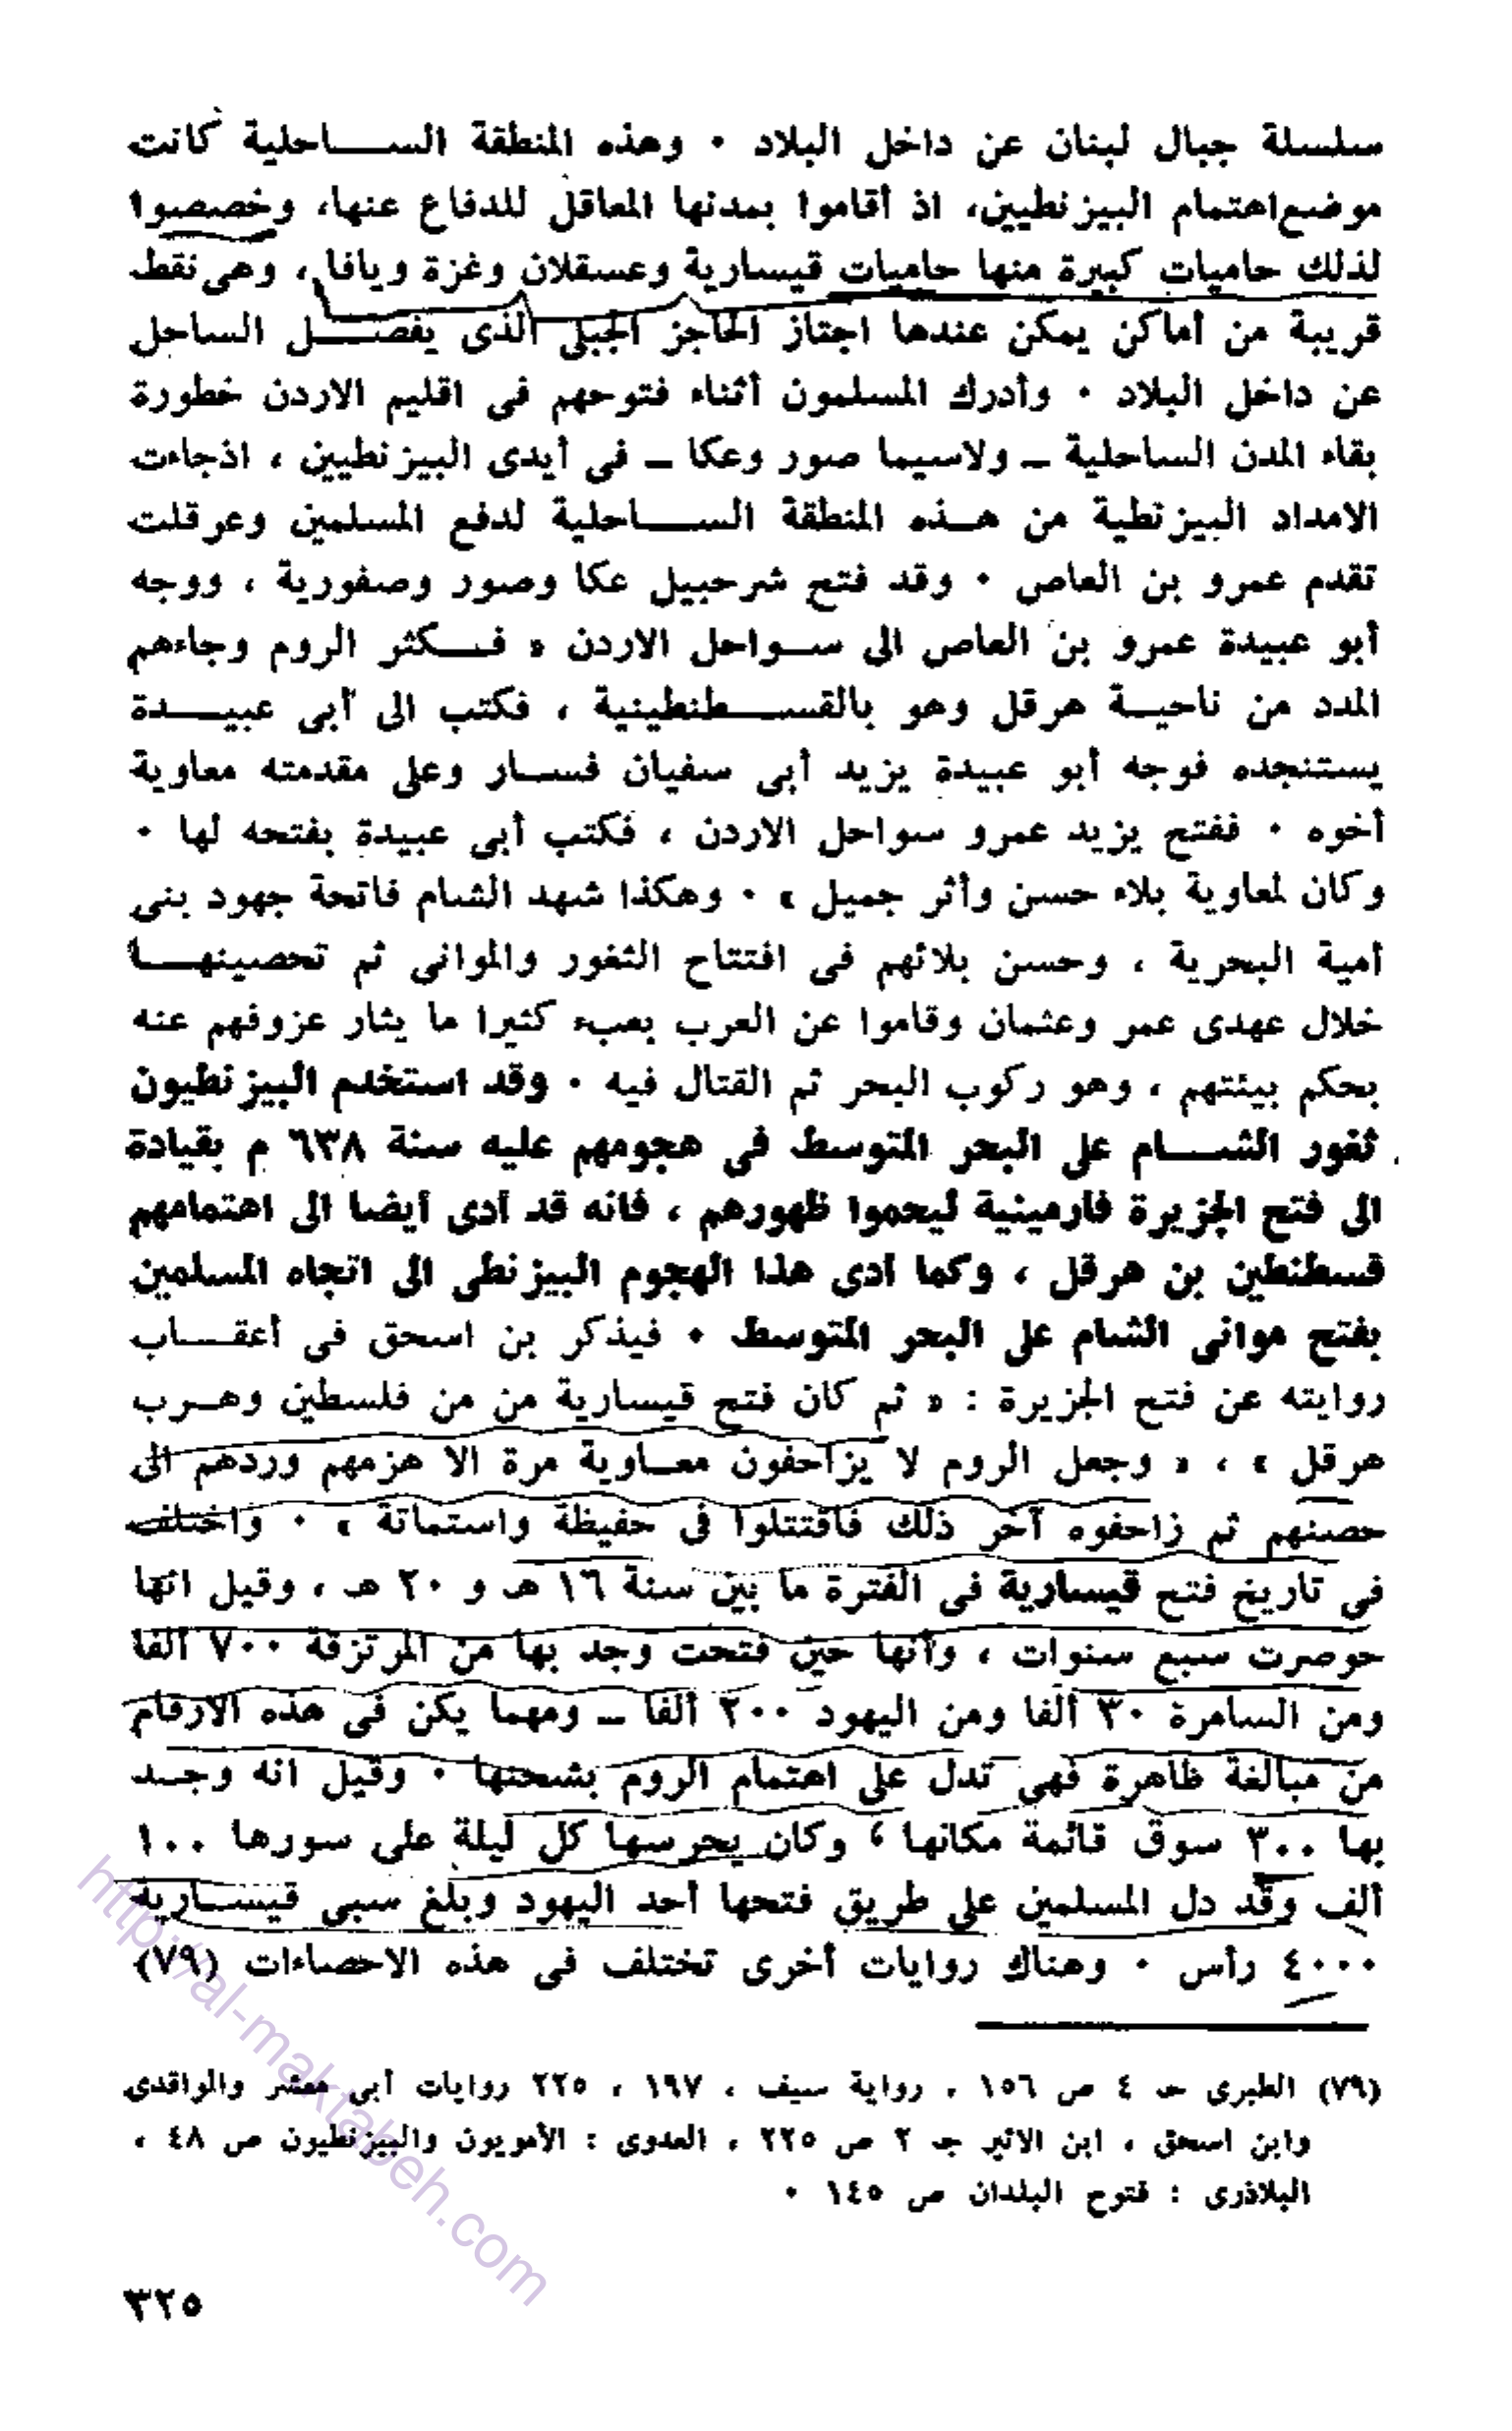 سلسلة جبال لبنان عن داخل البلاد . وهذه المنطقة الساحلية كانت
موضع اهتمام البيزنطيين، اذ أقاموا بمدنها المعاقل للدفاع عنها، وخصصوا
لذلك حاميات كبيرة منها حاميات قيسارية وعسقلان وغزة ويافا ، وهى نقط
قريبة من أماكن يمكن عندها اجتاز الحاجز الجبلى الذى يفصل الساحل
عن داخل البلاد . وأدرك المسلمون أثناء فتوحهم فى اقليم الاردن خطورة
بقاء المدن الساحلية ــ ولاسيما صور وعكا ــ فى أيدى البيزنطيين ، اذجاءت
الامداد البيزنطية من هذه المنطقة الساحلية لدفع المسلمين وعرقلت
تقدم عمرو بن العاص . وقد فتح شرحبيل عكا وصور وصفورية ، ووجه
أبو عبيدة عمرو بن العاص الى سواحل الاردن « فكثر الروم وجاءهم
المدد من ناحية هرقل وهو بالقسطنطينية ، فكتب الى أبى عبيدة
يستنجده فوجه أبو عبيدة يزيد أبى سفيان فسار وعلى مقدمته معاوية
أخوه . ففتح يزيد عمرو سواحل الاردن ، فكتب أبى عبيدة بفتحه لها .
وكان لمعاوية بلاء حسن وأثر جميل » . وهكذا شهد الشام فاتحة جهود بنى
أمية البحرية ، وحسن بلائهم فى افتتاح الثغور والموانى ثم تحصينها
خلال عهدى عمر وعثمان وقاموا عن العرب بعبء كثيرا ما يثار عزوفهم عنه
بحكم بيئتهم ، وهو ركوب البحر ثم القتال فيه . وقد استخدم البيزنطيون
ثغور الشام على البحر المتوسط فى هجومهم عليه سنة ٦٣٨ م بقيادة
الى فتح الجزيرة فارمينية ليحموا ظهورهم ، فانه قد أدى أيضا الى اهتمامهم
قسطنطين بن هرقل ، وكما أدى هذا الهجوم البيزنطى الى اتجاه المسلمين
بفتح موانى الشام على البحر المتوسط . فيذكر بن اسحق فى أعقاب
روايته عن فتح الجزيرة : « ثم كان فتح قيسارية من من فلسطين وهرب
هرقل » ، « وجعل الروم لا يزاحفون معاوية مرة الا هزمهم وردهم الى
حصنهم ثم زاحفوه آخر ذلك فاقتتلوا فى حفيظة واستماتة » . واختلف
فى تاريخ فتح قيسارية فى الفترة ما بين سنة ١٦ هـ و ٢٠ هـ ، وقيل انها
حوصرت سبع سنوات ، وأنها حين فتحت وجد بها من المرتزقة ٧٠٠ ألفا
ومن السامرة ٣٠ ألفا ومن اليهود ٢٠٠ ألفا ــ ومهما يكن فى هذه الارقام
من مبالغة ظاهرة فهى تدل على اهتمام الروم بشحنتها . وقيل انه وجد
بها ٣٠٠ سوق قائمة مكانها ، وكان يحرسها كل ليلة على سورها ١٠٠
ألف وقد دل المسلمين على طريق فتحها أحد اليهود وبلغ سبى قيسارية
٤٠٠٠ رأس . وهناك روايات أخرى تختلف فى هذه الاحصاءات (٧٩)
(٧٩) الطبرى حـ ٤ ص ١٥٦ ، رواية سيف ، ١٩٧ ، ٢٢٥ روايات أبى معشر والواقدى
وابن اسحق ، ابن الاثير جـ ٢ ص ٢٢٥ ، العدوى : الأمويون والبيزنطيون ص ٤٨ ،
البلاذرى : فتوح البلدان ص ١٤٥ .
٣٢٥
http://al-maktabeh.com